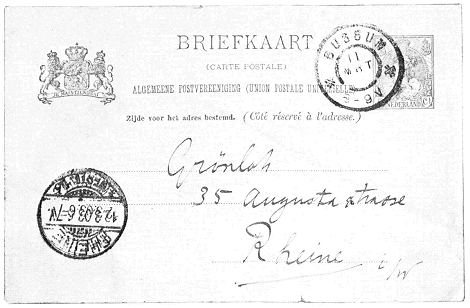 BRIEFKAART
(CARTE POSTALE)
ALGEMEENE POSTVEREENIGING (UNION POSTALE UNIVERSELLE)
Zijde voor het adres bestemd. (Côté réservé à l'adresse.)
BUSSUM
11
MRT
8-9V
NEDERLAND
JE MAINTIENDRAI
Grönloh
35 Augustastrasse
Rheine
i/W
RHEINE
12.3.03.6-7N.